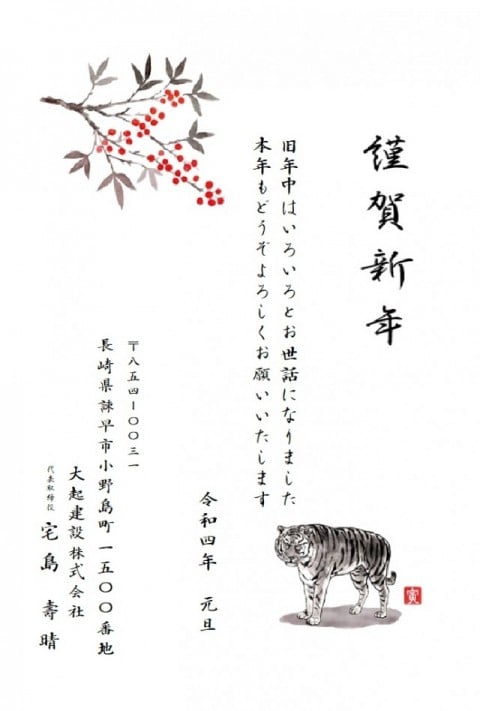 謹賀新年
旧年中はいろいろとお世話になりました
本年もどうぞよろしくお願いいたします
令和四年　元旦
〒八五四ー〇〇三一
長崎県諫早市小野島町一五〇〇番地
大起建設株式会社
代表取締役　宅島　壽晴
寅